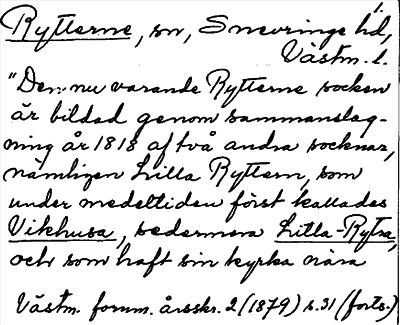 Rytterne, sn, Snevringe hd,
Västm. l.
"Den nu varande Rytterne socken
är bildad genom sammanslag-
ning år 1818 af två andra socknar,
nämligen Lilla Ryttern, som
under medeltiden först kallades
Vikhusa, sedermera Litla-Rytra,
och som haft sin kyrka nära
Västm. fornm. årsskr. 2 (1879) s. 31 (forts.)